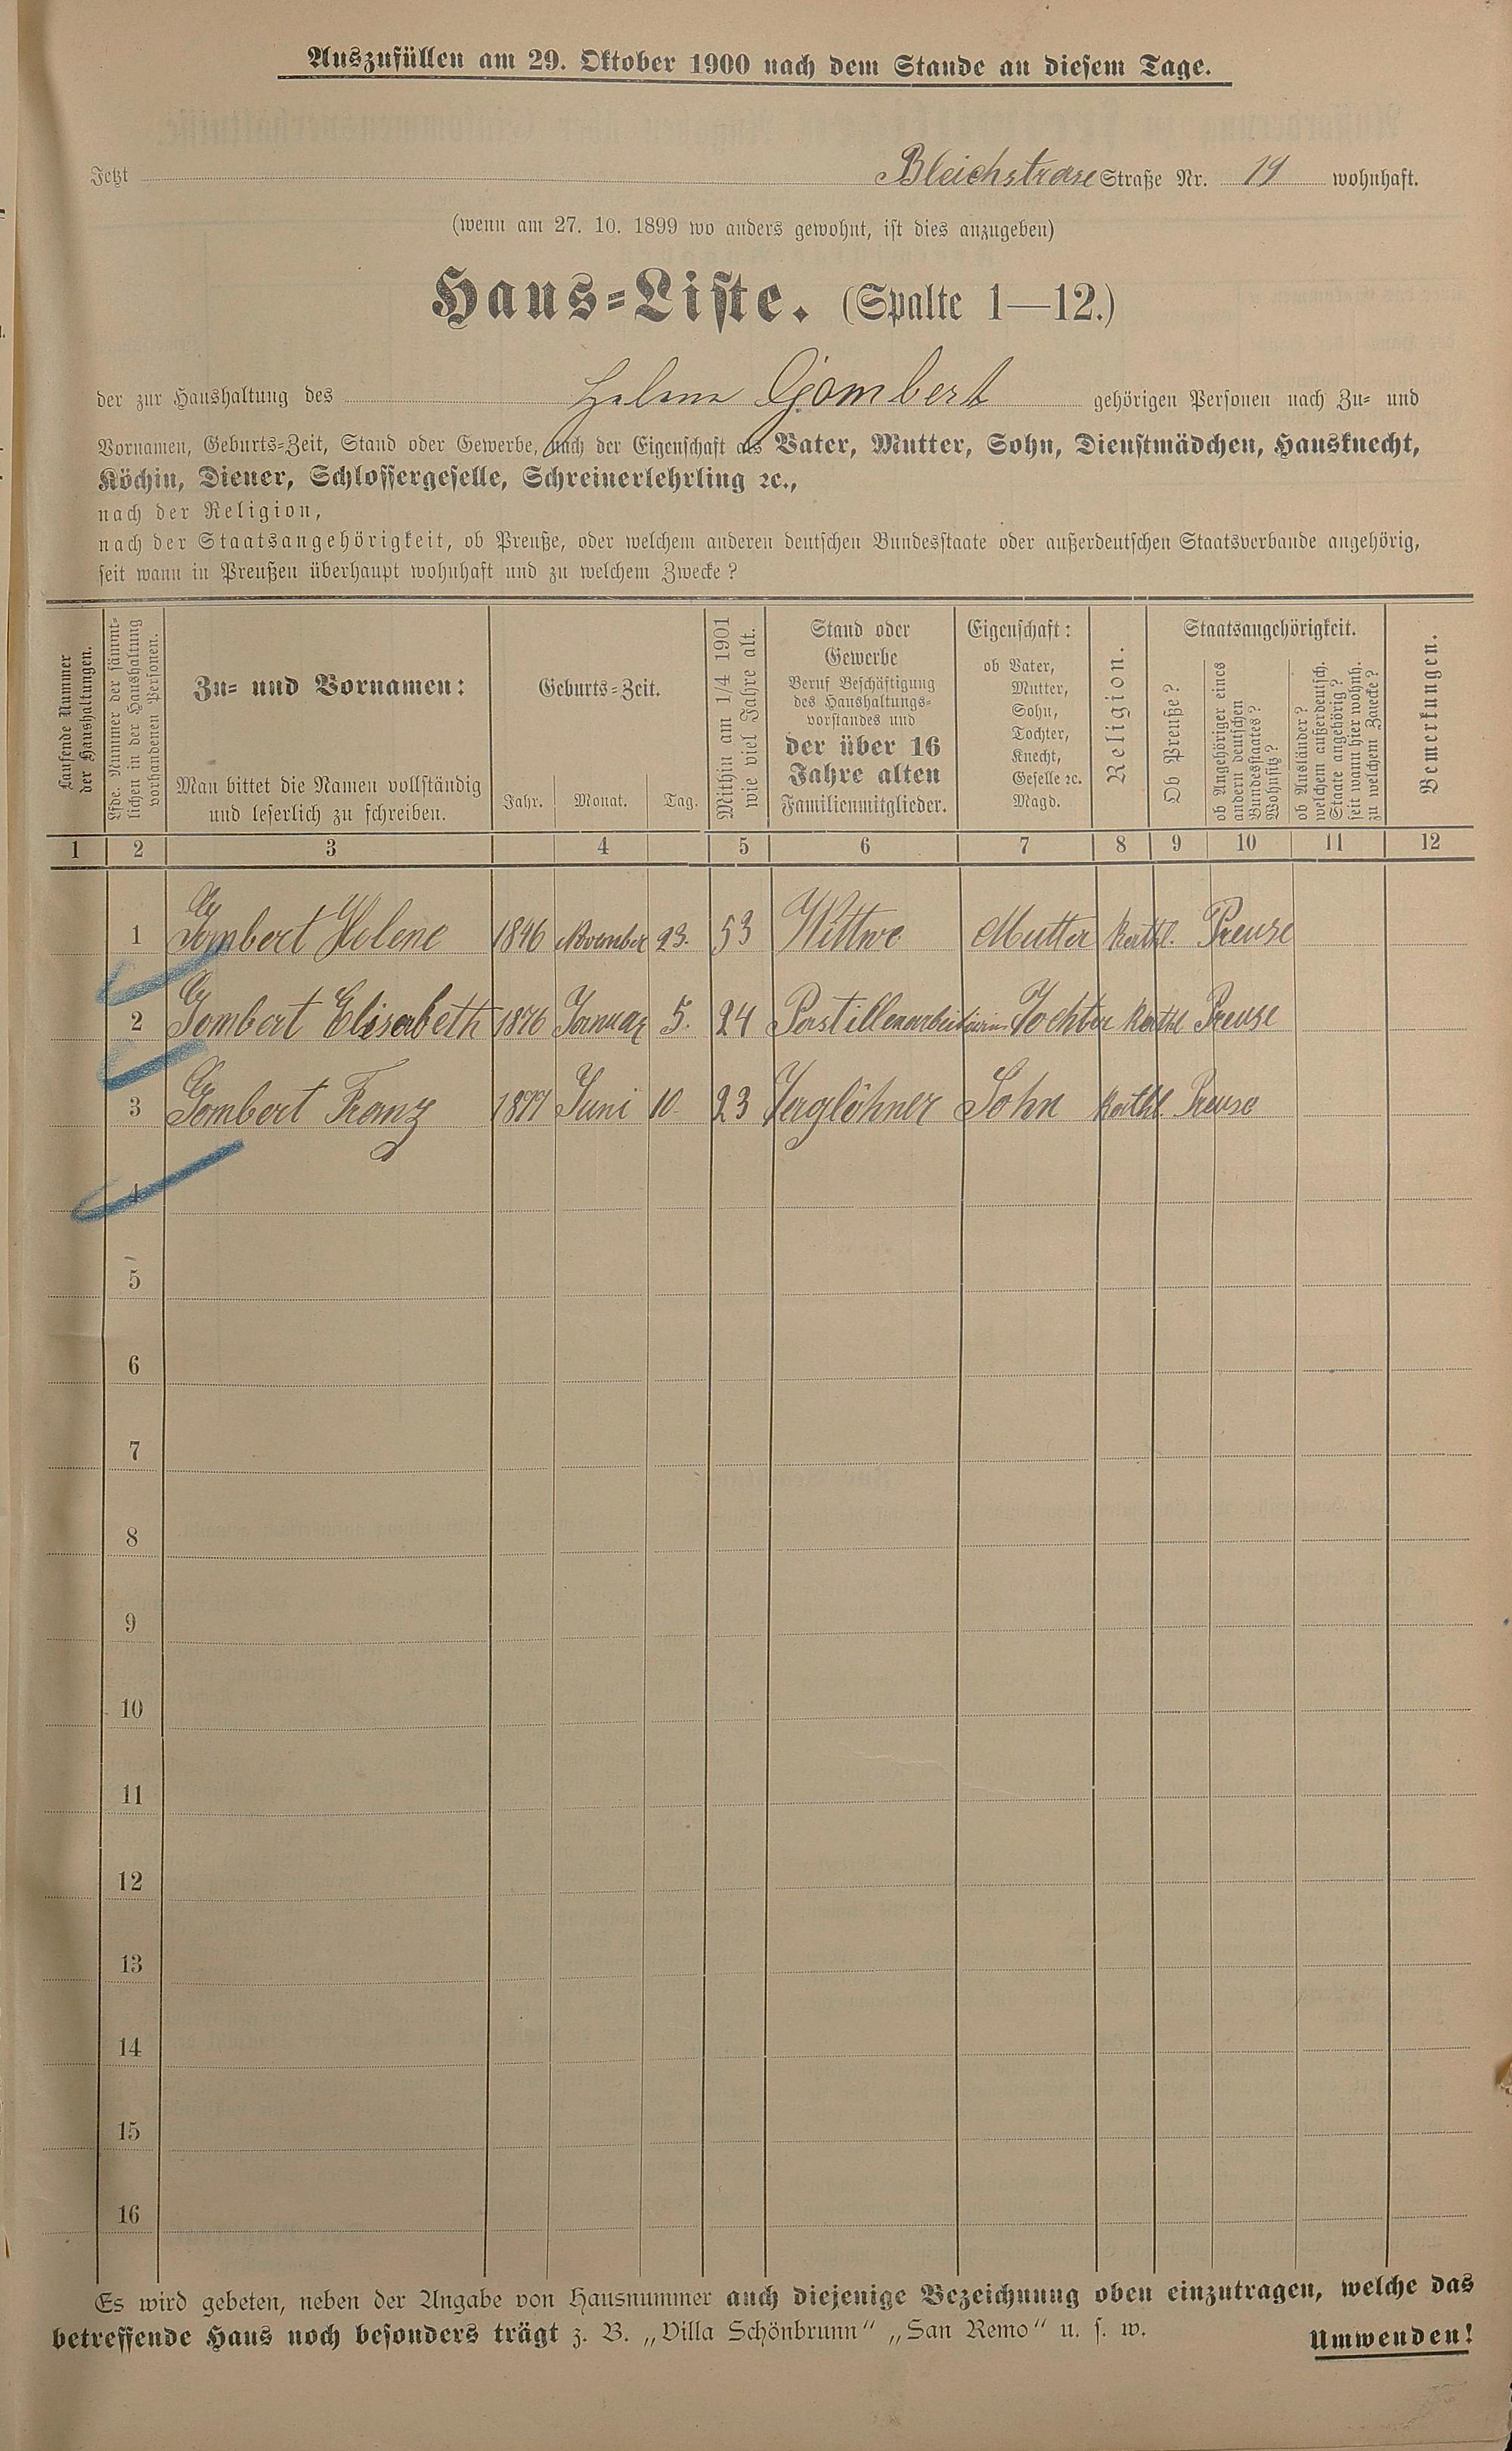 Auszufüllen am 29. Oktober 1900 nach dem Stande an diesem Tage.
Jetzt Bleichstrase Straße Nr. 19 wohnhaft.
(wenn am 27. 10. 1899 wo anders gewohnt, ist dies anzugeben)
Haus-Liste. (Spalte 1—12.)
der zur Haushaltung des Gombert gehörigen Personen nach Zu- und
Vornamen, Geburts-Zeit, Stand oder Gewerbe, nach der Eigenschaft als Vater, Mutter, Sohn, Dienstmädchen, Hausknecht,
Köchin, Diener, Schlossergeselle, Schreinerlehrling ꝛc.,
nach der Religion,
nach der Staatsangehörigkeit, ob Preuße, oder welchem anderen deutschen Bundesstaate oder außerdeutschen Staatsverbande angehörig,
seit wann in Preußen überhaupt wohnhaft und zu welchem Zwecke?
Laufende Nummer
der Haushaltungen.
Lfde. Nummer der sämmt-
lichen in der Haushaltung
vorhandenen Personen.
Zu- und Vornamen:
Man bittet die Namen vollständig
und leserlich zu schreiben.
Geburts-Zeit.
Jahr. Monat. Tag.
Mithin am 1/4 1901
wie viel Jahre alt.
Stand oder
Gewerbe
Beruf Beschäftigung
des Haushaltungs-
vorstandes und
der über 16
Jahre alten
Familienmitglieder.
Eigenschaft:
ob Vater,
Mutter,
Sohn,
Tochter,
Knecht,
Geselle ꝛc.
Magd.
Religion.
Staatsangehörigkeit.
Ob Preuße?
ob Angehöriger eines
andern deutschen
Bundesstaates?
Wohnsitz?
ob Ausländer?
welchem außerdeutsch.
Staate angehörig?
seit wann hier wohnh.
zu welchem Zwecke?
Bemerkungen.
1 2 3 4 5 6 7 8 9 10 11 12
1 Gombert Helene 1846 November 23. 53 Wittwe Mutter kathl. Preuse
2 Gombert Elisabeth 1876 Januar 5. 24 Tochter kathl Preuse
3 Gombert Franz 1877 Juni 10. 23 Taglöhner Sohn kathl. Preuse
4
5
6
7
8
9
10
11
12
13
14
15
16
Es wird gebeten, neben der Angabe von Hausnummer auch diejenige Bezeichnung oben einzutragen, welche das
betreffende Haus noch besonders trägt z. B. „Villa Schönbrunn“ „San Remo“ u. s. w.
Umwenden!